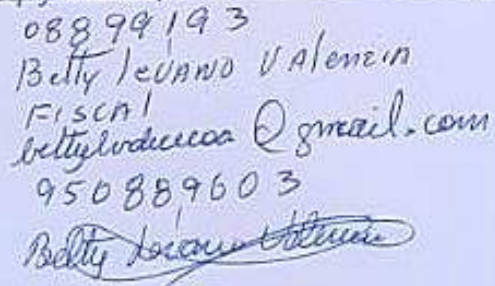 08899193
Betty leVANO VAlencia
FISCAl
@gmail.com
950889603
Betty Lévano Valencia